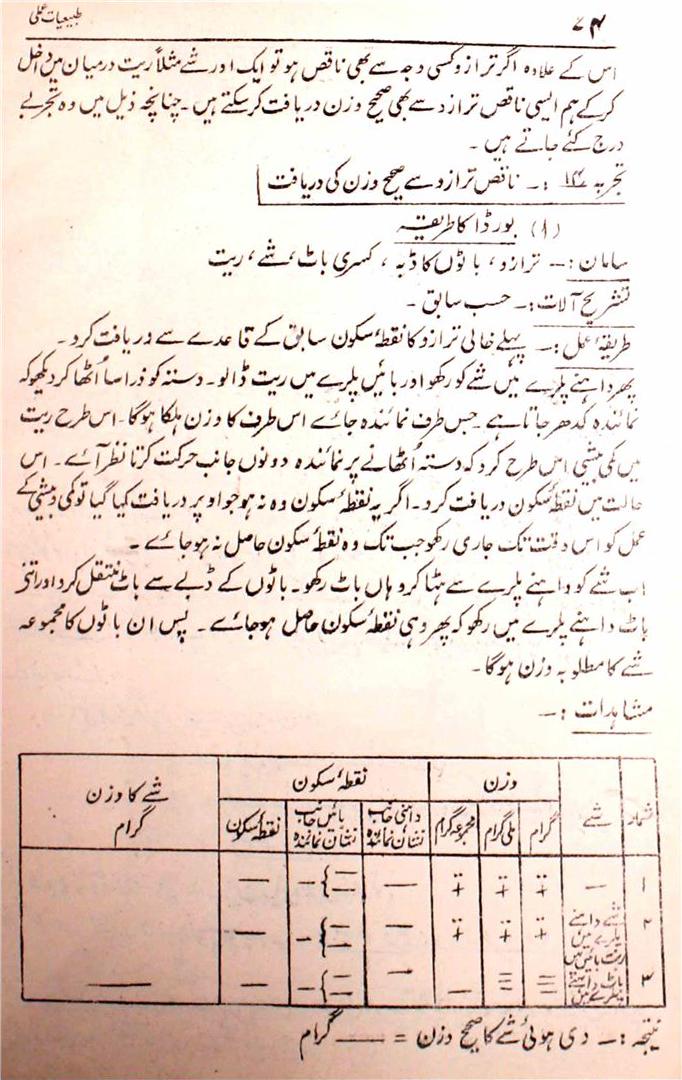 ۷۴
طبیعیات عملی
اس کے علاوہ اگر ترازو کسی وجہ سے بھی ناقص ہو تو ایک اور شے مثلاً ریت درمیان میں داخل
کر کے ہم ایسی ناقص ترازو سے بھی صحیح وزن دریافت کر سکتے ہیں۔ چنانچہ ذیل میں وہ تجربے
درج کئے جاتے ہیں۔
تجربہ :۔ ناقص ترازو سے صحیح وزن کی دریافت
(۱) بورڈا کا طریقہ
سامان :۔ ترازو، باٹوں کا ڈبہ، کسری باٹ، شے، ریت
تشریح آلات :۔ حسب سابق۔
طریقۂ عمل :۔ پہلے خالی ترازو کا نقطۂ سکون سابق کے قاعدے سے دریافت کرو۔
پھر داہنے پلڑے میں شے کو رکھو اور بائیں پلڑے میں ریت ڈالو۔ دستہ کو ذرا سا اُٹھا کر دیکھو کہ
نمائندہ کدھر جاتا ہے جس طرف نمائندہ جائے اس طرف کا وزن ہلکا ہوگا۔ اس طرح ریت
میں کمی بیشی اس طرح کرو کہ دستہ اُٹھانے پر نمائندہ دونوں جانب حرکت کرتا نظر آئے۔ اس
حالت میں نقطۂ سکون دریافت کرو۔ اگر یہ نقطۂ سکون وہ نہ ہو جو اوپر دریافت کیا گیا تو کمی و بیشی کے
عمل کو اس وقت تک جاری رکھو جب تک وہ نقطۂ سکون حاصل نہ ہو جائے۔
اب شے کو داہنے پلڑے سے ہٹا کر وہاں باٹ رکھو۔ باٹوں کے ڈبے سے باٹ منتقل کرو اور اتنے
باٹ داہنے پلڑے میں رکھو کہ پھر وہی نقطۂ سکون حاصل ہو جائے۔ پس ان باٹوں کا مجموعہ
شے کا مطلوبہ وزن ہوگا۔
مشاہدات :۔
شمار شے وزن نقطۂ سکون شے کا وزن گرام
گرام ملی گرام مجموعہ گرام داہنی جانب نشان نمائندہ بائیں جانب نشان نمائندہ نقطۂ سکون
۱ — ÷ ÷ ÷ — — —
۲ شے داہنے پلڑے میں ریت بائیں میں ÷ ÷ ÷ — — —
۳ باٹ داہنے پلڑے میں — — — — — — —
نتیجہ :۔ دی ہوئی شے کا صحیح وزن = —— گرام